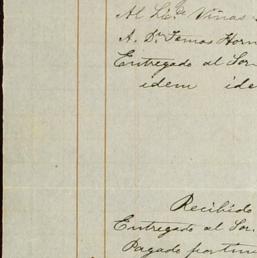 Al Lic.do Viñas
A. Dn Tomas Horn
Entregado al Sor
idem ide
Recibido
Entregado al Sor.
Pagado por tim